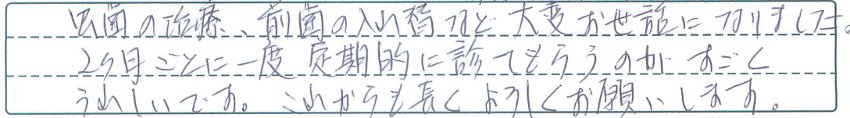 虫歯の治療、前歯の入れ替など大変お世話になりました。
2ヶ月ごとに一度定期的に診てもらうのがすごく
うれしいです。これからも長くよろしくお願いします。